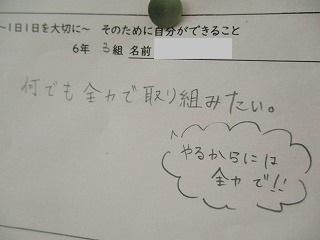 ~1日1日を大切に~ そのために自分ができること
6年 3組 名前
何でも全力で取り組みたい。
やるからには
全力で!!